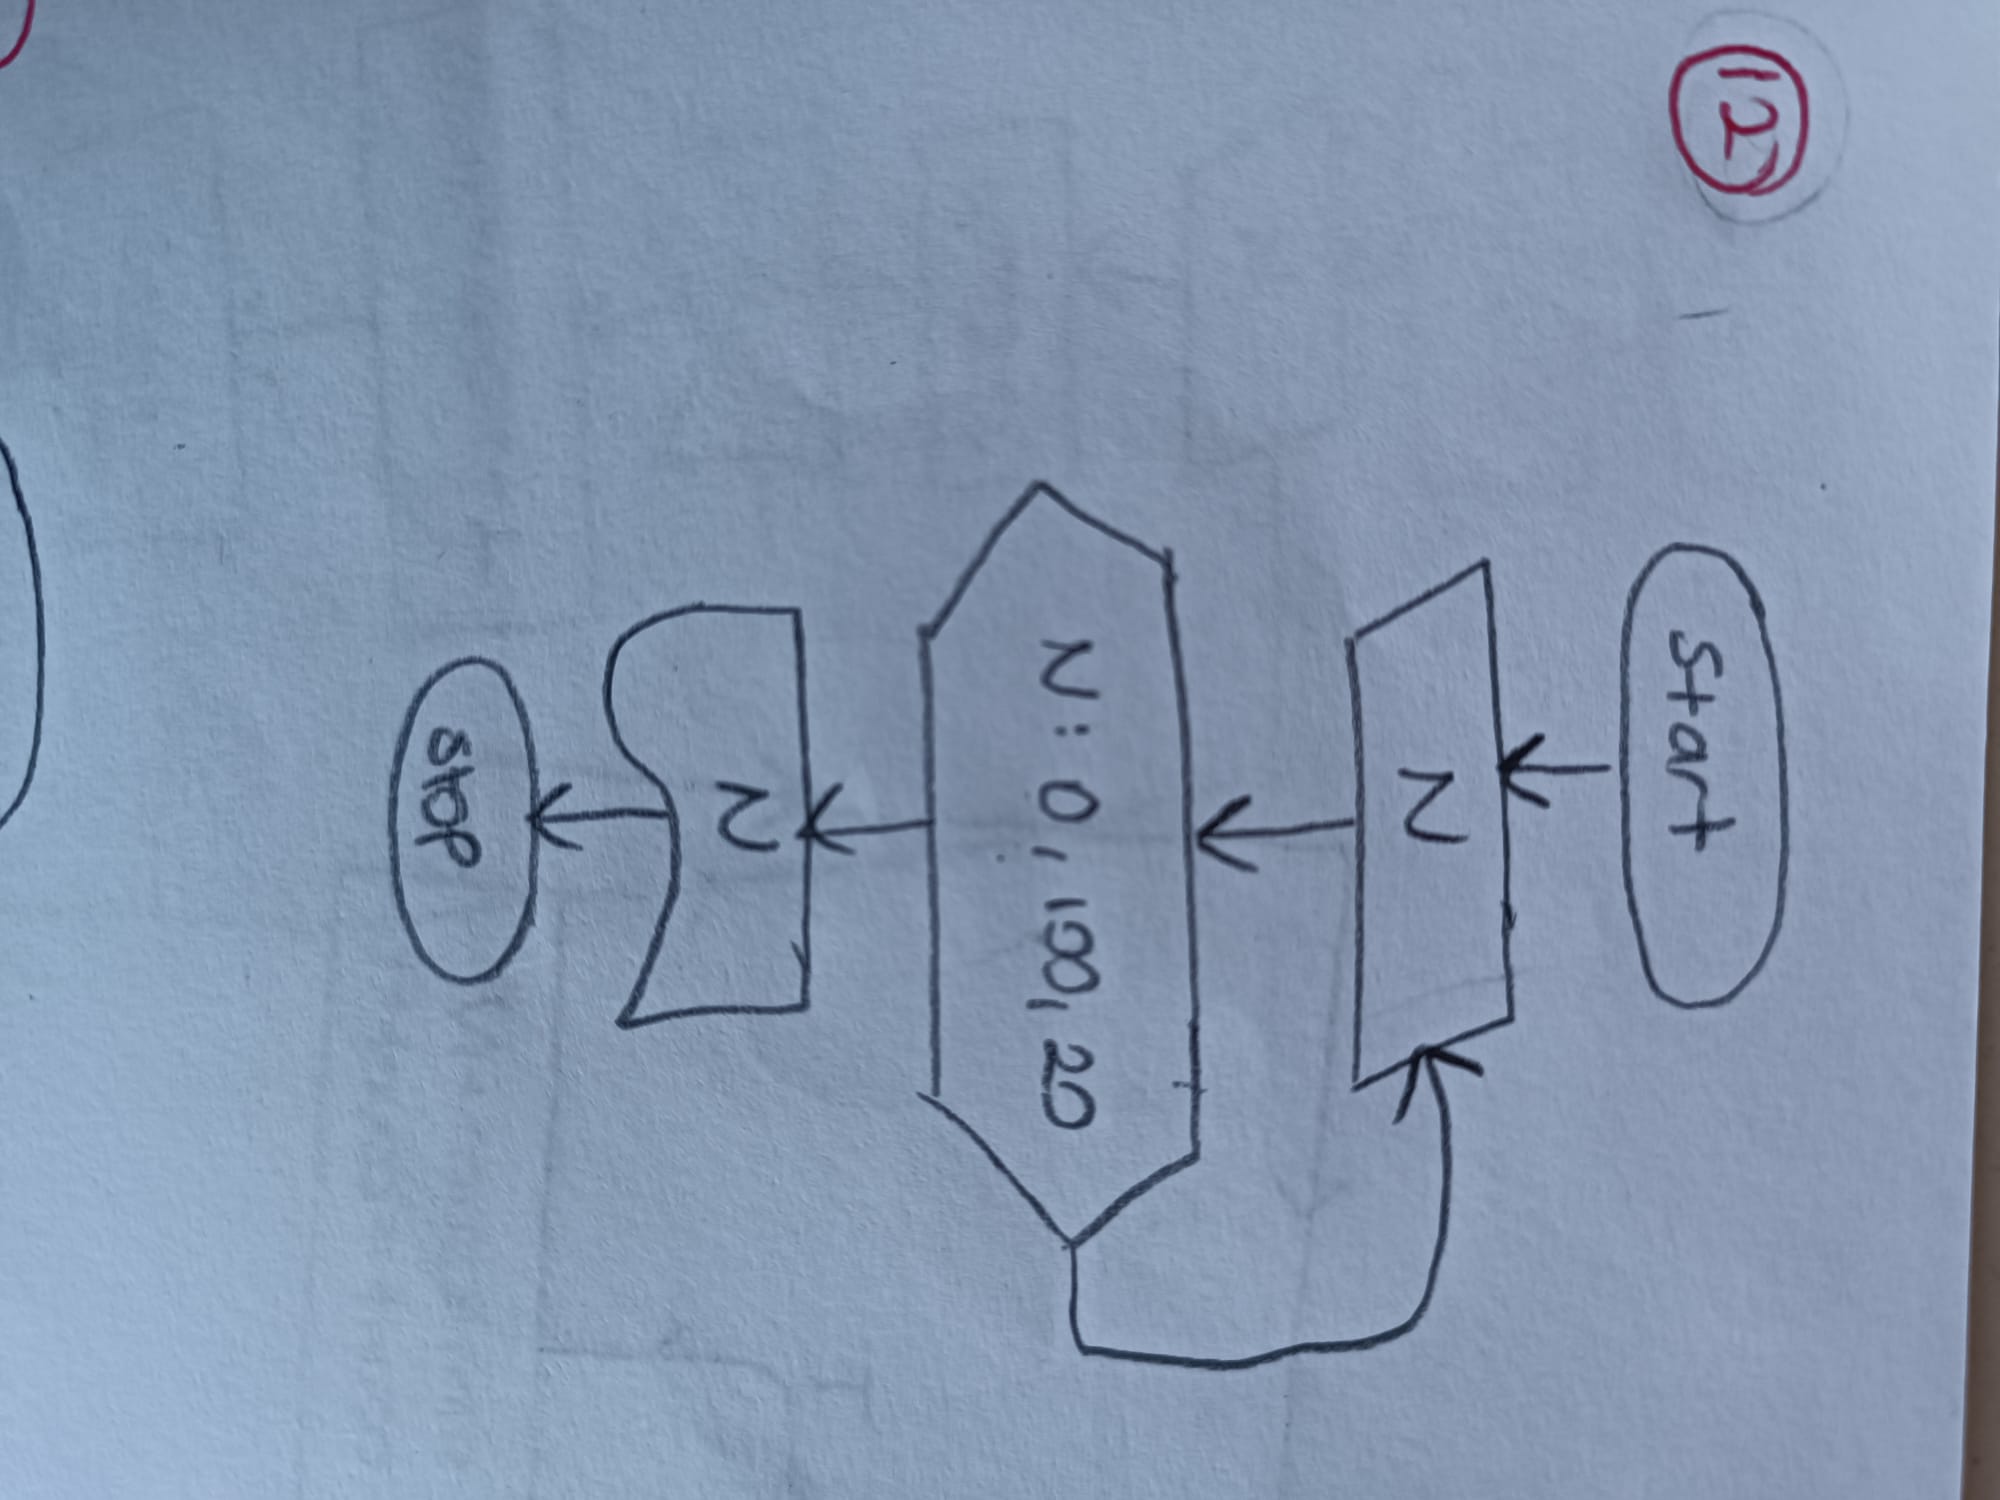 12
Start
N
N: 0, 100, 20
N
Stop